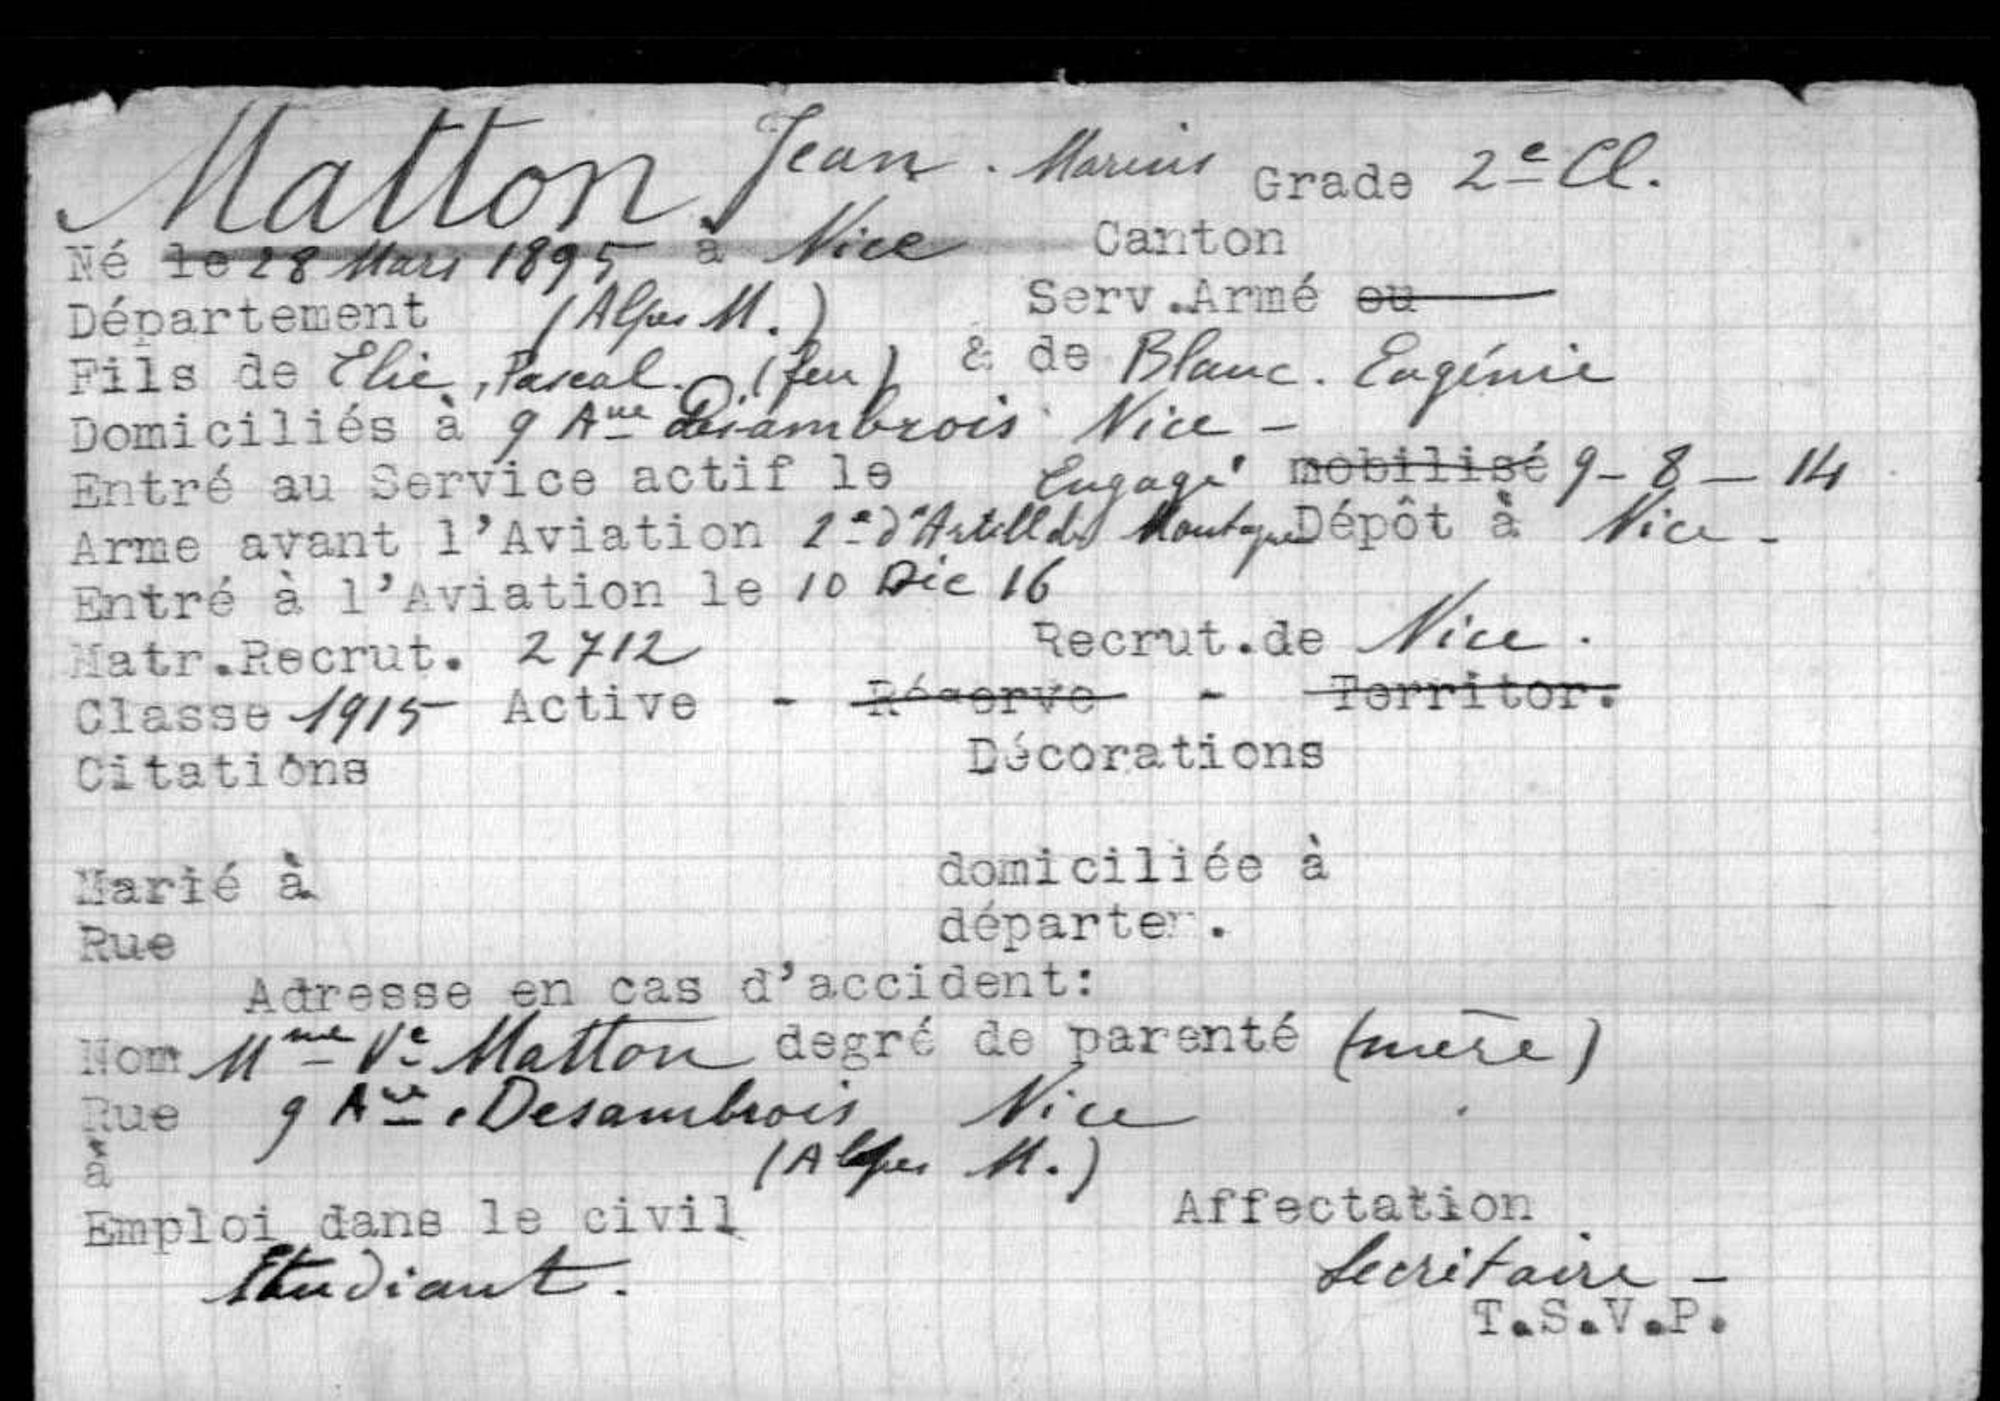 Matton Jean. Marius Grade 2e Cl.
Né le 28 Mars 1895 à Nice Canton
Département (Alpes M.) Serv.Armé ou
Fils de Elie, Pascal. (feu) & de Blanc. Eugénie
Domiciliés à 9 Aue Désambrois Nice -
Entré au Service actif le Engagé mobilisé 9-8-14
Arme avant l'Aviation 2e d'Artill de Montagne Dépôt à Nice -
Entré à l'Aviation le 10 Déc 16
Matr.Recrut. 2712 Recrut.de Nice.
Classe 1915 Active - Réserve - Territor.
Citations Décorations
Marié à domiciliée à
Rue départem.
Adresse en cas d'accident:
Nom Mme Ve Matton degré de parenté (mère)
Rue 9 Aue Desambrois Nice
à (Alpes M.)
Emploi dans le civil Affectation
Etudiant. Secrétaire -
T.S.V.P.